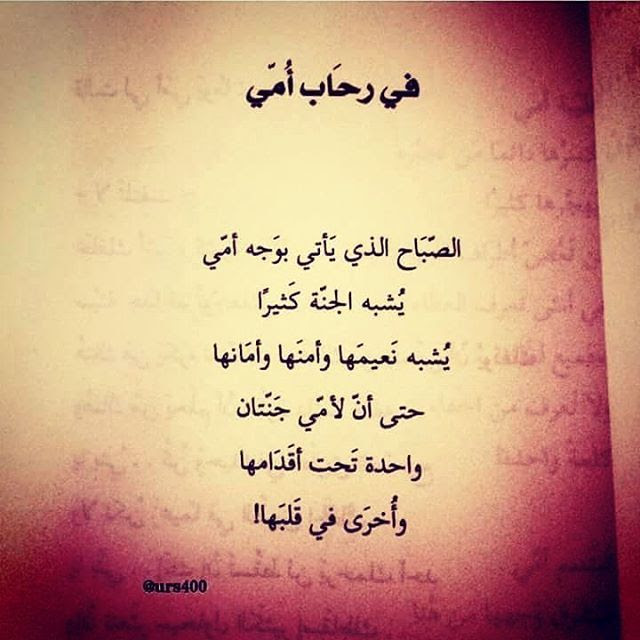 في رحَاب أُمّي
الصّبَاح الذي يَأتي بوَجه أمّي
يُشبه الجنّة كَثيرًا
يُشبه نَعيمَها وأمنَها وأمَانها
حتى أنّ لأمّي جَنّتان
واحدة تَحت أقَدَامها
وأُخرَى في قَلبَها!
@urs400